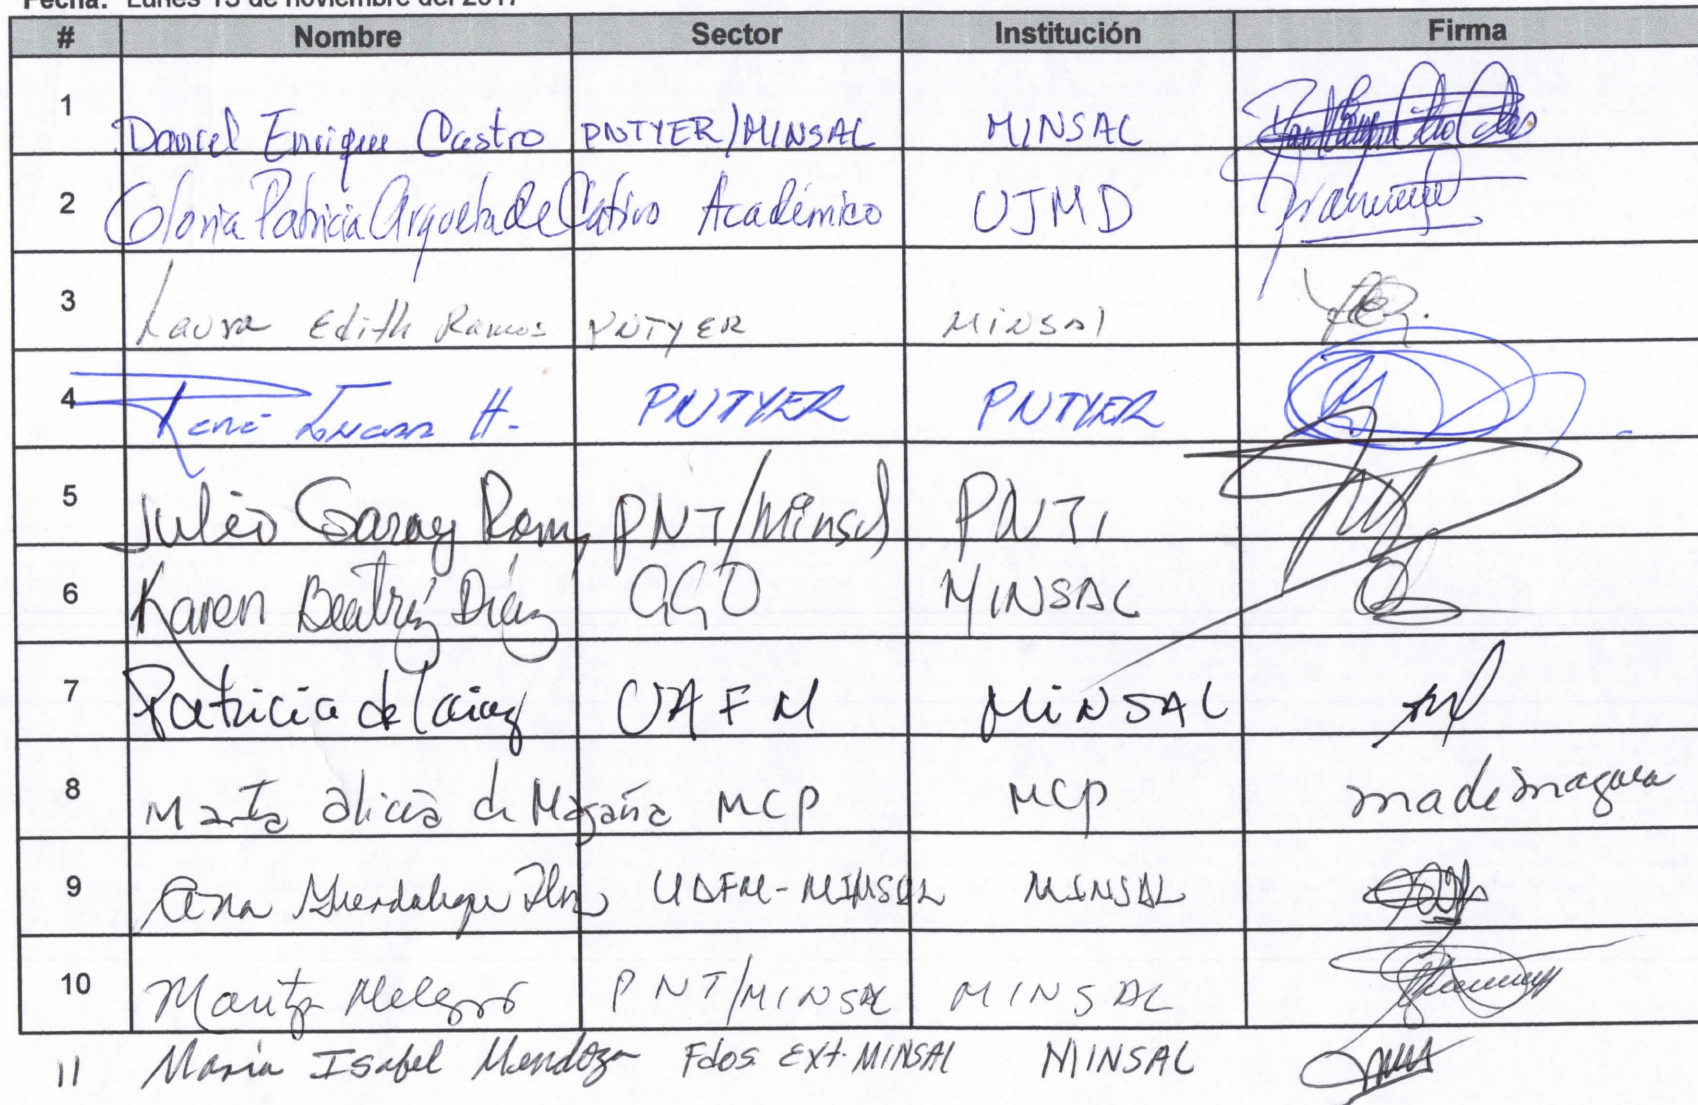 Fecha: Lunes 13 de noviembre del 2017
# Nombre Sector Institución Firma
1 Daniel Enrique Castro PNTYER/MINSAL MINSAL
2 Gloria Patricia Argueta de Cativo Académico UJMD
3 Laura Edith Ramos PNTYER MINSAl
4 René H. PNTYER PNTYER
5 Julio Garay Ramos PNT/Minsal PNT
6 Karen Beatriz Díaz MINSAL
7 Patricia de UAFM MiNSAL
8 Marta Alicia de Magaña MCP MCP mademagaña
9 Ana Guadalupe UAFM-MINSAL MINSAL
10 Maritza PNT/MINSAL MINSAL
11 María Isabel Mendoza Fdos. Ext. MINSAL MINSAL